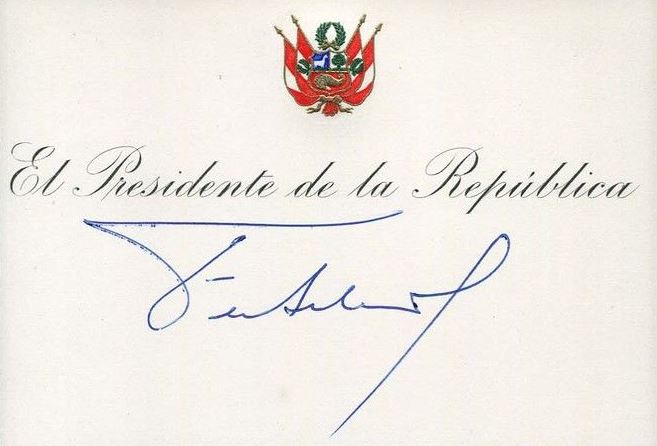 El Presidente de la República